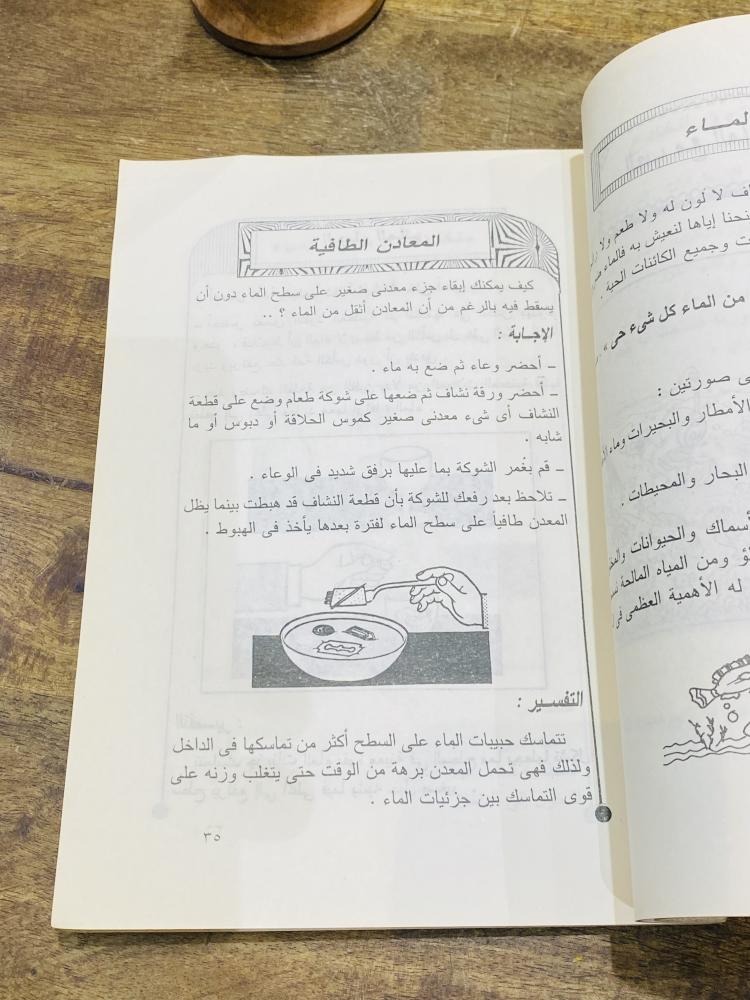 المعادن الطافية
كيف يمكنك إبقاء جزء معدنى صغير على سطح الماء دون أن
يسقط فيه بالرغم من أن المعادن أثقل من الماء ؟ ..
الإجـابة :
ــ أحضر وعاء ثم ضع به ماء .
ــ أحضر ورقة نشاف ثم ضعها على شوكة طعام وضع على قطعة
النشاف أى شىء معدنى صغير كموس الحلاقة أو دبوس أو ما
شابه .
ــ قم بغُمر الشوكة بما عليها برفق شديد فى الوعاء .
ــ تلاحظ بعد رفعك للشوكة بأن قطعة النشاف قد هبطت بينما يظل
المعدن طافياً على سطح الماء لفترة بعدها يأخذ فى الهبوط .
التفسـير :
تتماسك حبيبات الماء على السطح أكثر من تماسكها فى الداخل
ولذلك فهى تحمل المعدن برهة من الوقت حتى يتغلب وزنه على
قوى التماسك بين جزئيات الماء .
٣٥
لا لون له ولا طعم ولا
إياها لنعيش به فالماء
وجميع الكائنات الحية .
من الماء كل شىء حى »
صورتين :
الأمطار والبحيرات وماء
البحار والمحيطات .
والحيوانات
ومن المياه المالحة
له الأهمية العظمى فى